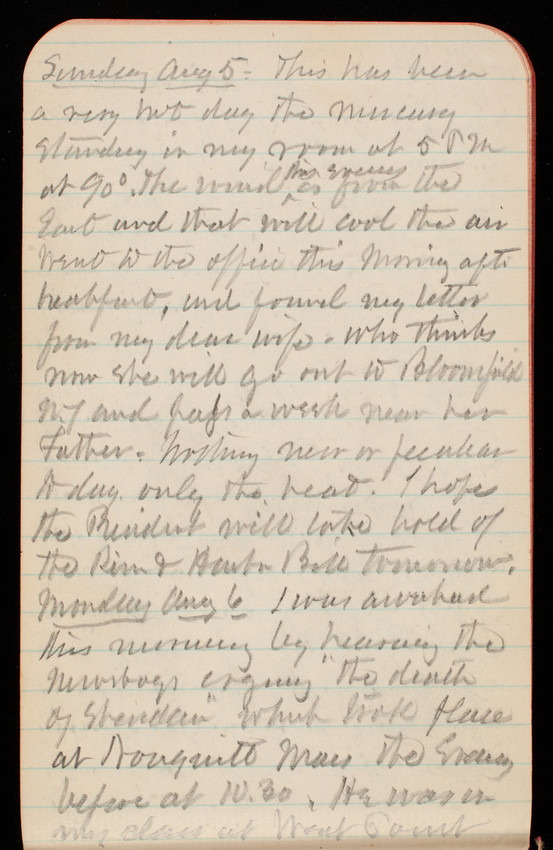 Sunday Aug 5 - This has been
a very hot day the mercury
standing in my room at 5 P M
at 90°. The wind this evening is from the
East and that will cool the air
Went to the office this morning after
breakfast, and found my letter
from my dear wife - who thinks
now she will go out to Bloomfield
N.J and pass a week near her
Father - Nothing new or peculiar
to day only the heat. I hope
the President will take hold of
the River & Harbor Bill tomorrow.
Monday Aug 6 I was awakened
this morning by hearing the
Newsboys crying "the death
of Sheridan" which took place
at Nonquitt Mass the Evening
before at 10.30. He was in
my class at West Point